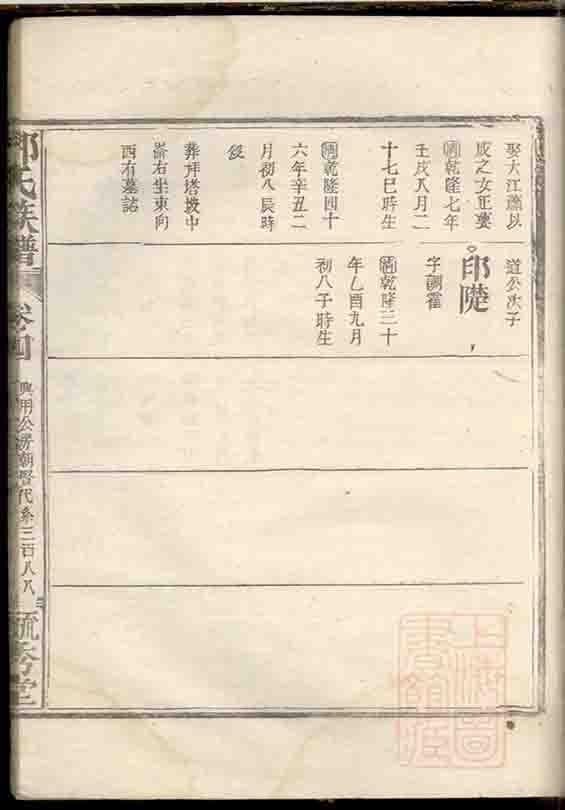 娶大江蕭以
成之女正裏
清乾隆七年
壬戌八月二
十七巳時生
清乾隆四十
六年辛丑二
月初八辰時
歿
葬拜塔坡中
崙右坐東向
西有墓誌
道公次子
邵隄
字調霍
清乾隆三十
年乙酉九月
初八子時生
邵氏族譜
卷四
興用公房朝賢代系三百八八
上海圖書館藏